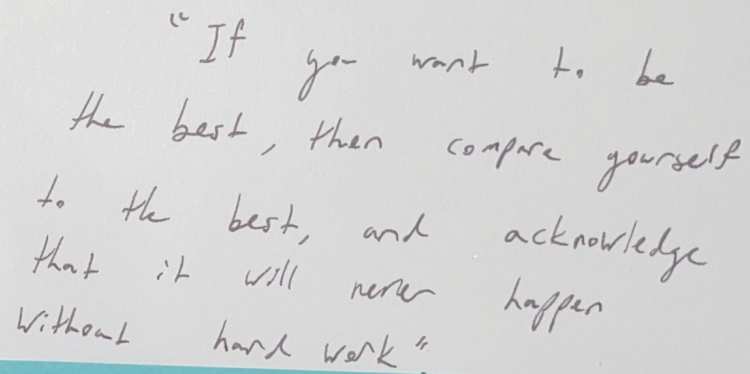 "If you want to be
the best, then compare yourself
to the best, and acknowledge
that it will never happen
without hard work".